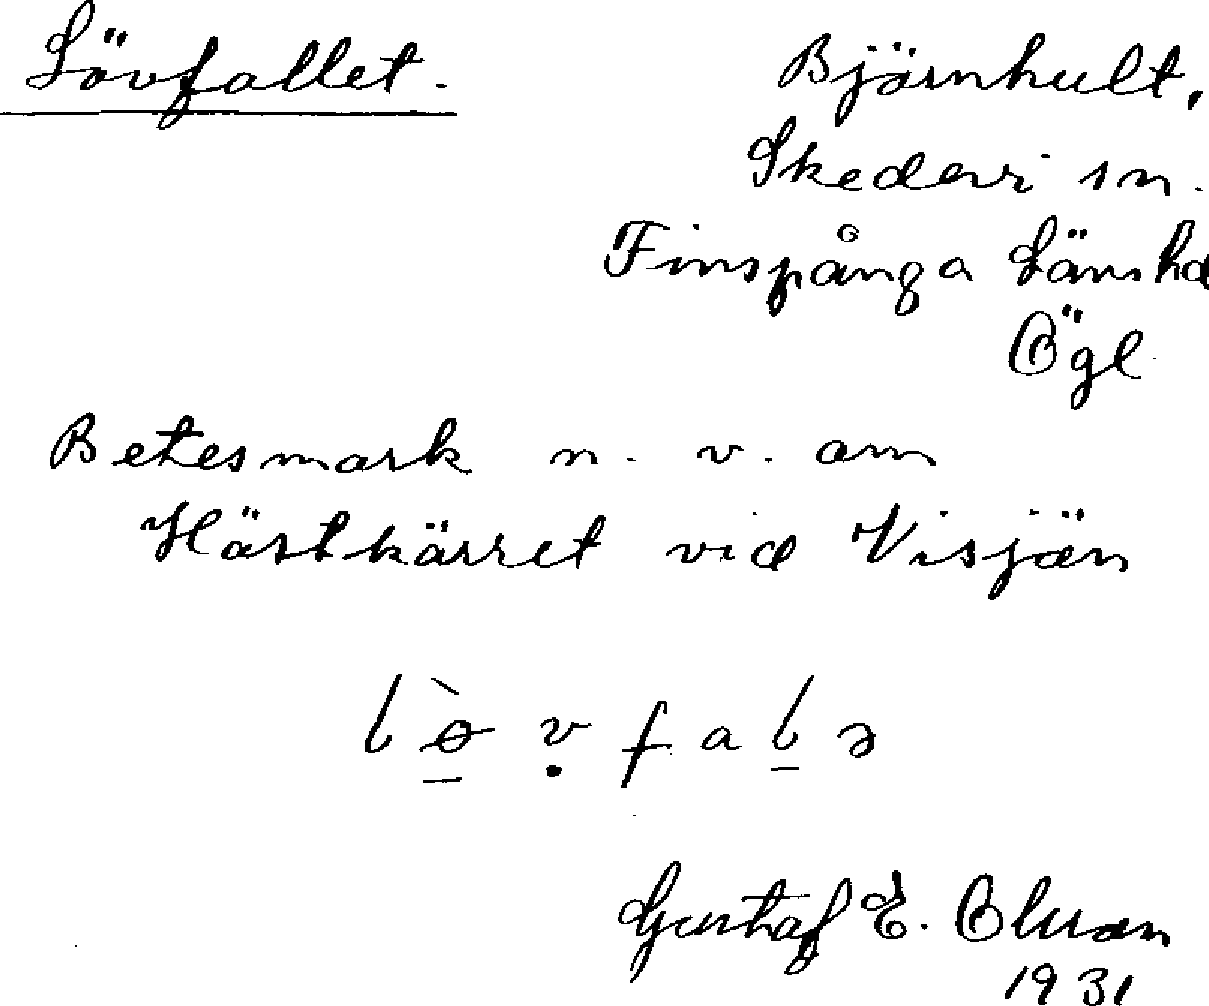 Lövfallet.
Björnhult,
Skedevi sn.
Finspånga Länshd
Ögl
Betesmark n. v. om
Hästkärret vid Visjön
lòvfalə
Gustaf E. Olsson
1931